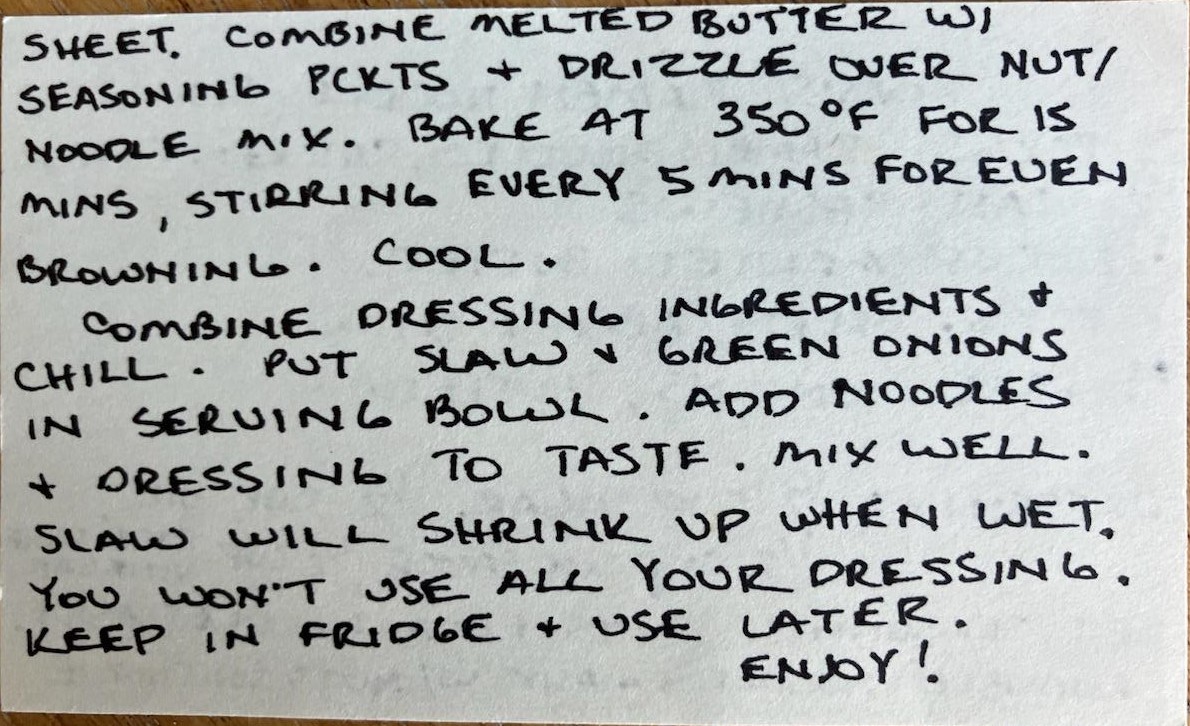 SHEET. COMBINE MELTED BUTTER W/
SEASONING PCKTS + DRIZZLE OVER NUT/
NOODLE MIX. BAKE AT 350°F FOR 15
MINS, STIRRING EVERY 5 MINS FOR EVEN
BROWNING. COOL.
COMBINE DRESSING INGREDIENTS +
CHILL. PUT SLAW + GREEN ONIONS
IN SERVING BOWL. ADD NOODLES
+ DRESSING TO TASTE. MIX WELL.
SLAW WILL SHRINK UP WHEN WET.
YOU WON'T USE ALL YOUR DRESSING.
KEEP IN FRIDGE + USE LATER.
ENJOY!